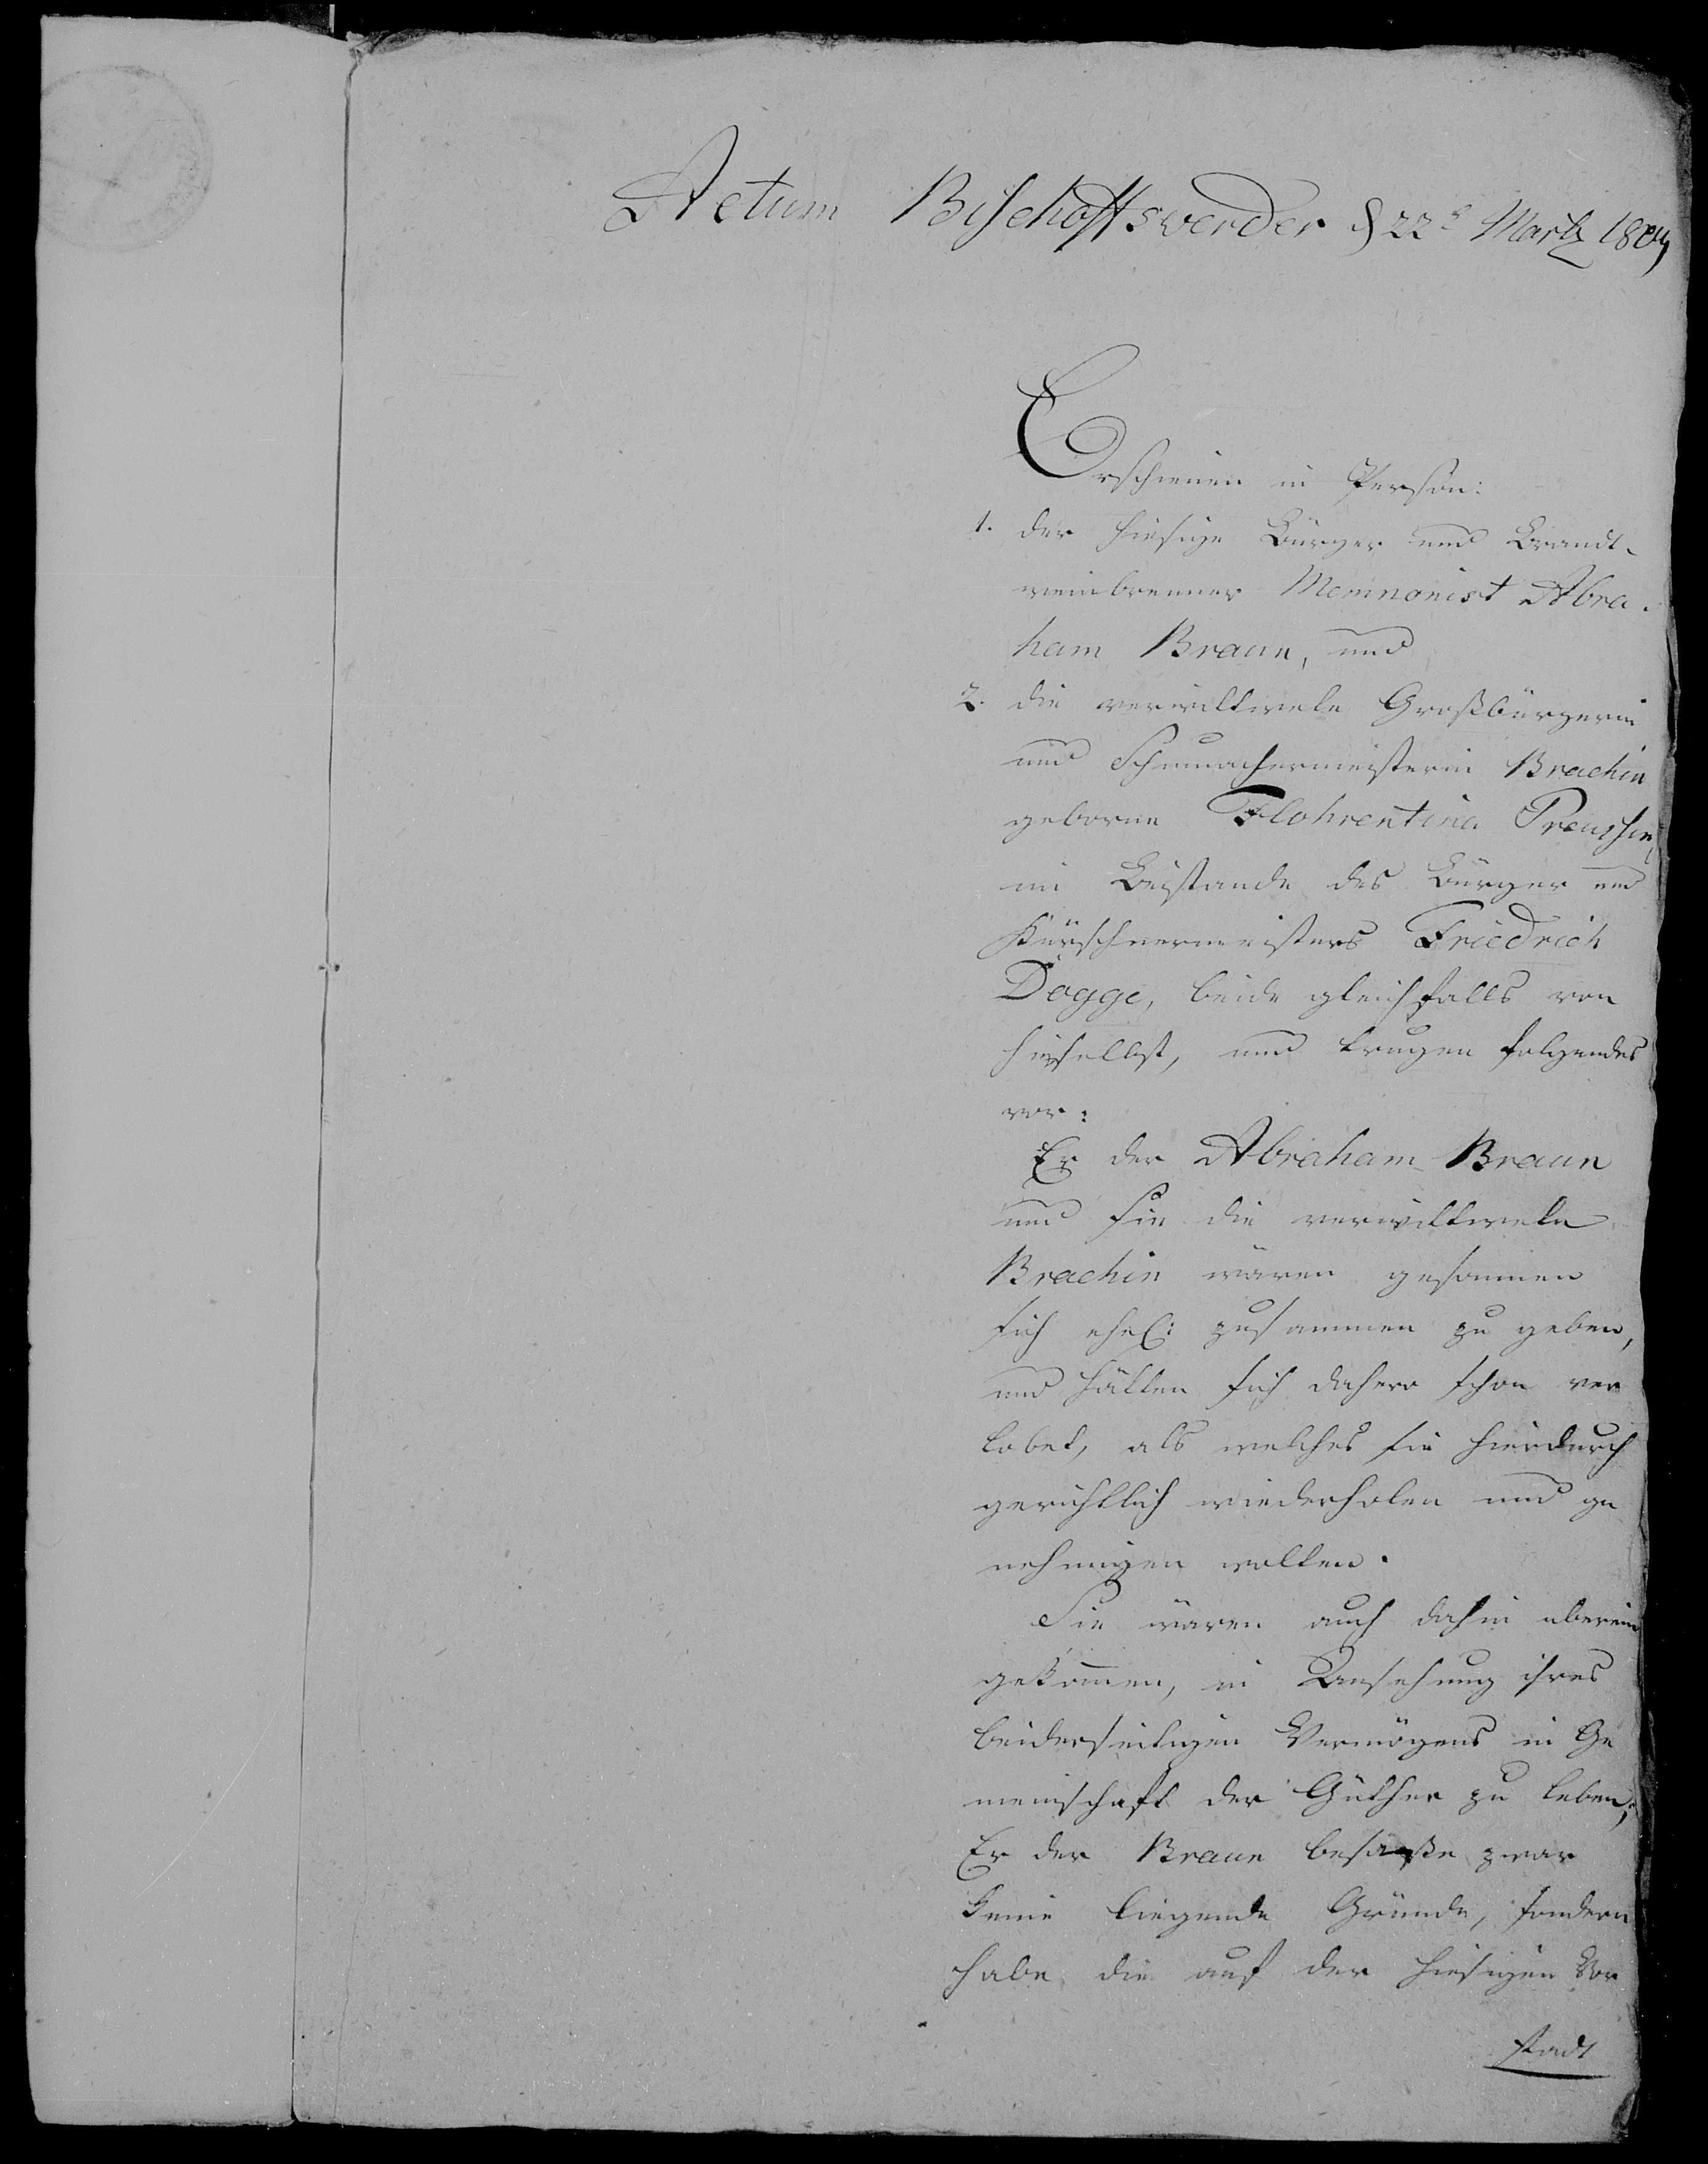 Actum Bischoffswerder d 22t Martz 180
Erschienen in Person:
1. der hiesige Bürger und Brandt-
weinbrenner Memnonist Abra-
ham Braun, und
2. die verwittwete Großbürgerin
und Schumachermeisterin Brachin
geborne Flohrentina Preussin,
im Beistande des Bürger und
Kürschnermeisters Friedrich
Dogge, beide gleichfalls von
hieselbst, und trugen folgendes
vor:
Er der Abraham Braun
und sie die verwittwete
Brachin wären gesonnen
sich ehel: zusammen zu geben,
und hätten sich dahero schon ver
lobet, als welches sie hierdurch
gerichtlich wiederholen und ge
nehmigen wollten.
Sie wären auch dahin uberein
gekommen, in Ansehung ihres
beiderseitigen Vermögens in Ge
meinschaft der Güther zu leben;
Er der Braun besaße zwar
keine liegende Gründe, sondern
habe die auf der hiesigen Vor
stadt